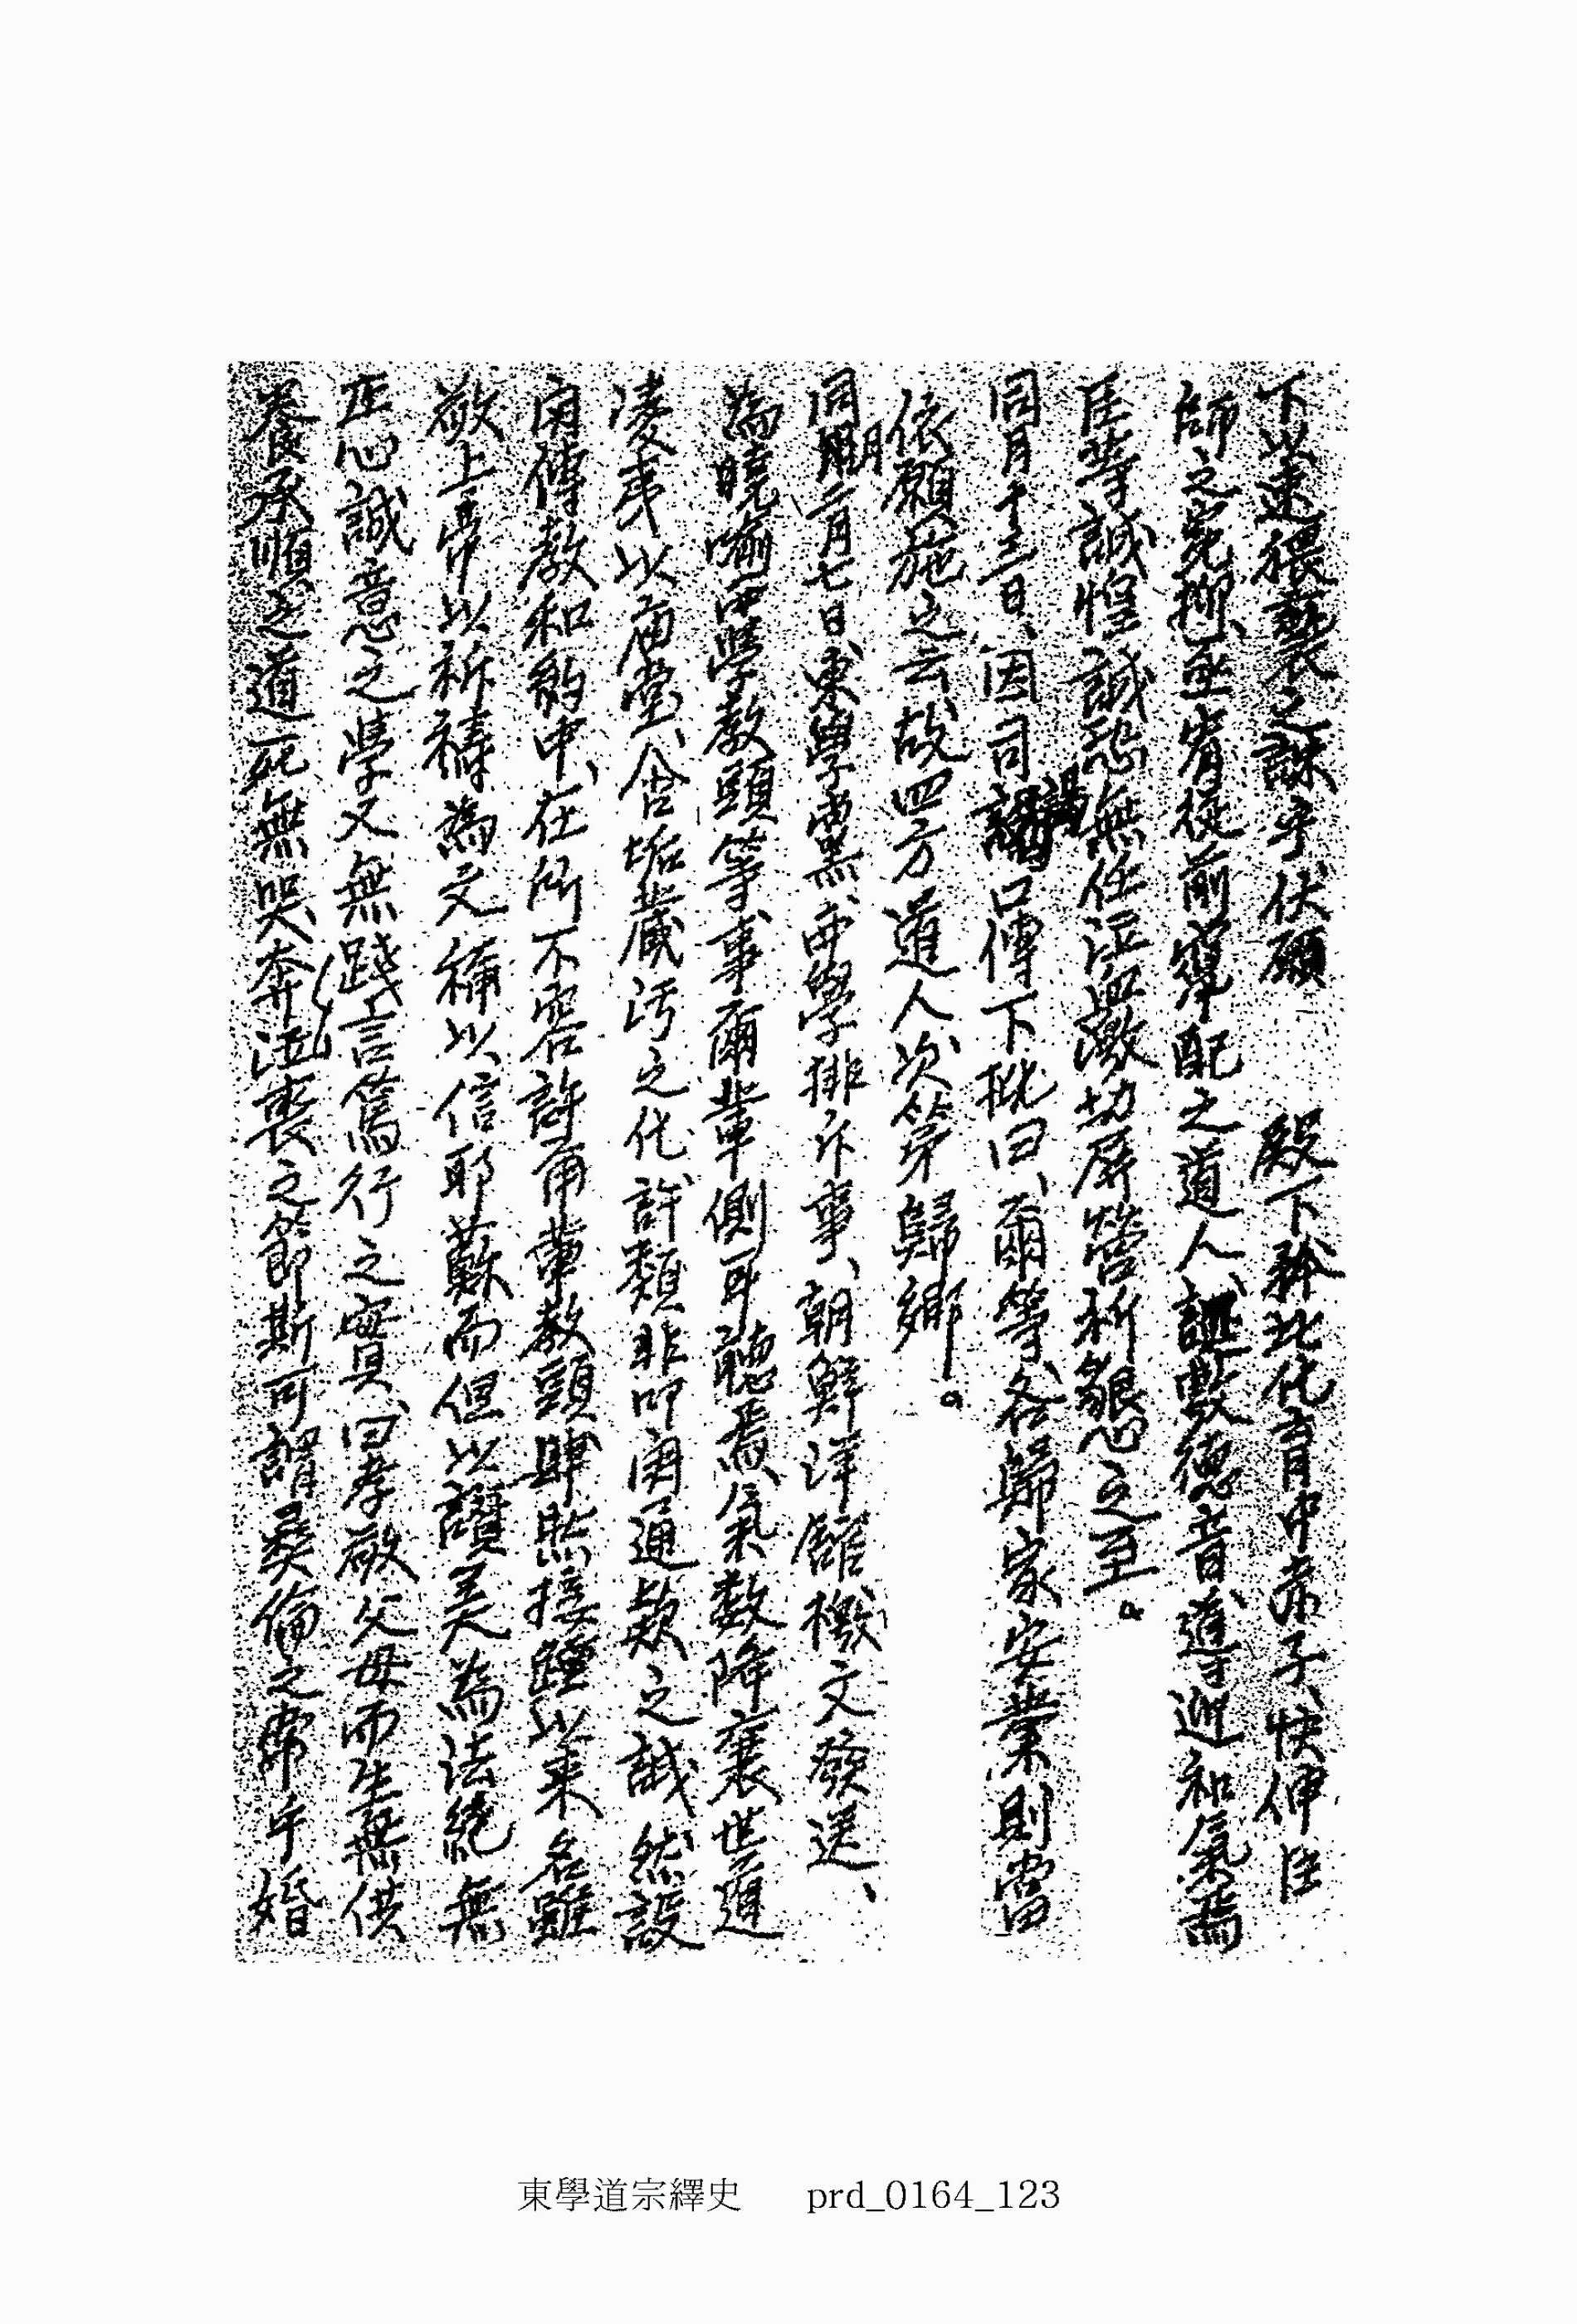 下以速猥褻之誅乎、伏願　　殿下矜此化育中赤子、快伸臣
師之冤抑、亟宥從前竄配之道人、誕敷德音、導迎和氣焉
臣等誠惶誠恐無任泣血激切屛營祈懇之至。
同月十三日、因司謁口傳下批曰、爾等、各歸家安業、則當
依願施之云、故四方道人次第歸鄕。
同月二月七日、東學黨、西學排斥事、朝鮮洋舘檄文發送、
爲曉喩西學敎頭等事、爾輩側耳聽焉、氣數降衰世道
凌夷以廟堂、含垢藏汚之化、許類非叩開通款之誠、然設
開傳敎和約中、在所不容許而輩敎頭肆然接踵以來名雖
敬上帝以祈禱爲文、稱以、信耶蘇而但以讚美爲法、絶無
正心誠意之學又無踐言篤行之實具、曰孝敬父母而生無供
養承順之道死無哭奔泣喪之節斯可謂彛倫之常乎婚
東學道宗繹史　prd_0164_123